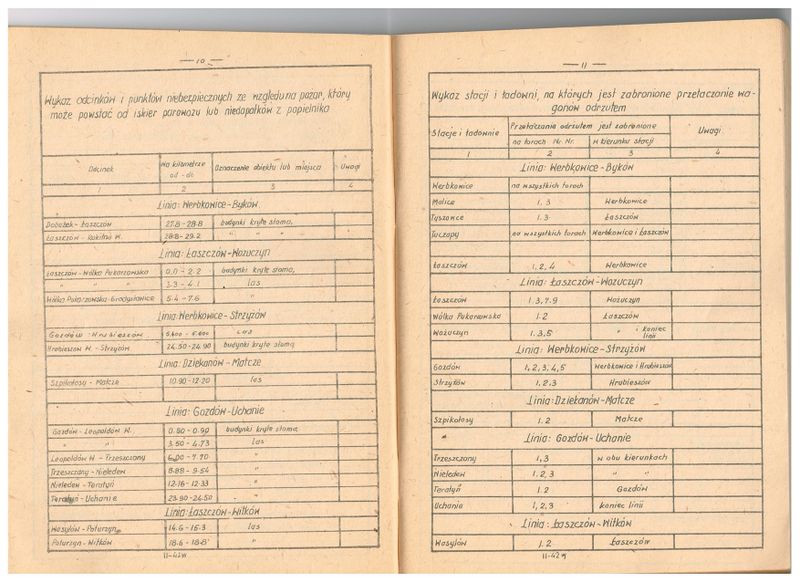 — 10 —
Wykaz odcinków i punktów niebezpiecznych ze względu na pożar, który
może powstać od iskier parowozu lub niedopałków z popielnika
Odcinek Na kilometrze od - do Oznaczenie obiektu lub miejsca Uwagi
1 2 3 4
Linia: Werbkowice - Byków
Dobożek - Łaszczów 27.8 - 28.8 budynki kryte słomą,
Łaszczów - 28.8 - 29.2 " " "
Linia: Łaszczów - Wożuczyn
Łaszczów - Wólka Pukarzowska 0.0 - 2.2 budynki kryte słomą,
" " " 3.3 - 4.1 las
Wólka Pukarzowska - 5.4 - 7.6 "
Linia: Werbkowice - Strzyżów
Gozdów - Hrubieszów las
Hrubieszów W. - Strzyżów 24.50 - 24.90 budynki kryte słomą
Linia: Dziekanów - Matcze
Szpikołosy - Matcze 10.90 - 12.20 las
Linia: Gozdów - Uchanie
Gozdów - Leopoldów W. 0.80 - 0.90 budynki kryte słomą
" " 3.50 - 4.73 las
Leopoldów W. - Trzeszczany 6.00 - 7.70 "
Trzeszczany - Nieledew 8.88 - 9.54 "
Nieledew - Teratyń 12.16 - 12.33 "
Teratyń - Uchanie 23.90 - 24.50 "
Linia: Łaszczów - Witków
Wasylów - Poturzyn 14.6 - 15.3 las
Poturzyn - Witków 18.6 - 18.8 "
11-42w
— 11 —
Wykaz stacji i ładowni, na których jest zabronione przetaczanie wa-
gonów odrzutem
Stacje i ładownie Przetaczanie odrzutem jest zabronione Uwagi
na torach Nr. Nr. w kierunku stacji
1 2 3 4
Linia: Werbkowice - Byków
Werbkowice na wszystkich torach
Malice 1, 3 Werbkowice
Tyszowce 1. 3 Łaszczów
Tuczapy na wszystkich torach Werbkowice i Łaszczów
Łaszczów 1, 2, 4 Werbkowice
Linia: Łaszczów - Wożuczyn
Łaszczów 1, 3, 7, 9 Wożuczyn
Wólka Pukarzowska 1. 2 Łaszczów
Wożuczyn 1. 3, 5 " i koniec linii
Linia: Werbkowice - Strzyżów
Gozdów 1, 2, 3, 4, 5 Werbkowice i Hrubieszów
Strzyżów 1, 2. 3 Hrubieszów
Linia: Dziekanów - Matcze
Szpikołosy 1. 2 Matcze
Linia: Gozdów - Uchanie
Trzeszczany 1, 3 w obu kierunkach
Nieledew 1, 2, 3 " "
Teratyń 1. 2 Gozdów
Uchanie 1, 2, 3 koniec linii
Linia: Łaszczów - Witków
Wasylów 1. 2 Łaszczów
11-42w